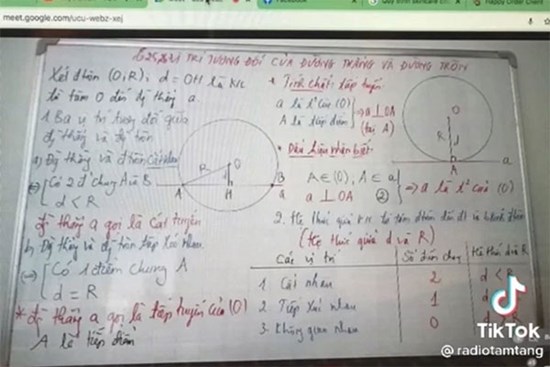 meet.google.com/ucu-webz-xej
VỊ TRÍ TƯƠNG ĐỐI CỦA ĐƯỜNG THẲNG VÀ ĐƯỜNG TRÒN
Xét đtròn (O,R); d = OH là k/c
từ tâm O đến đg thẳng a
1. Ba vị trí tương đối giữa
đg thẳng và đg tròn
a) Đg thẳng và đtròn cắt nhau
⇔ Có 2 đ' chung A và B
d < R
đg thẳng a gọi là Cát tuyến
b) Đg thẳng và đg tròn tiếp xúc nhau
⇔ Có 1 điểm chung A
d = R
* đg thẳng a gọi là tiếp tuyến của (O)
A là tiếp điểm
O
R
A
H
B
a
* Tính chất: tiếp tuyến
a là t² của (O)
A là tiếp điểm
⇒ a ⊥ OA
(tại A)
* Dấu hiệu nhận biết:
A ∈ (O), A ∈ a
a ⊥ OA
⇒ a là t² của (O)
O
R
A
a
2. Hệ thức giữa k/c từ tâm đtròn đến đt và bkính đtròn
(Hệ thức giữa d và R)
Các vị trí
Số điểm chung
Hệ thức d và R
1 Cắt nhau
2
d < R
2 Tiếp xúc nhau
1
d
3. Không giao nhau
0
TikTok
@radiotamtang